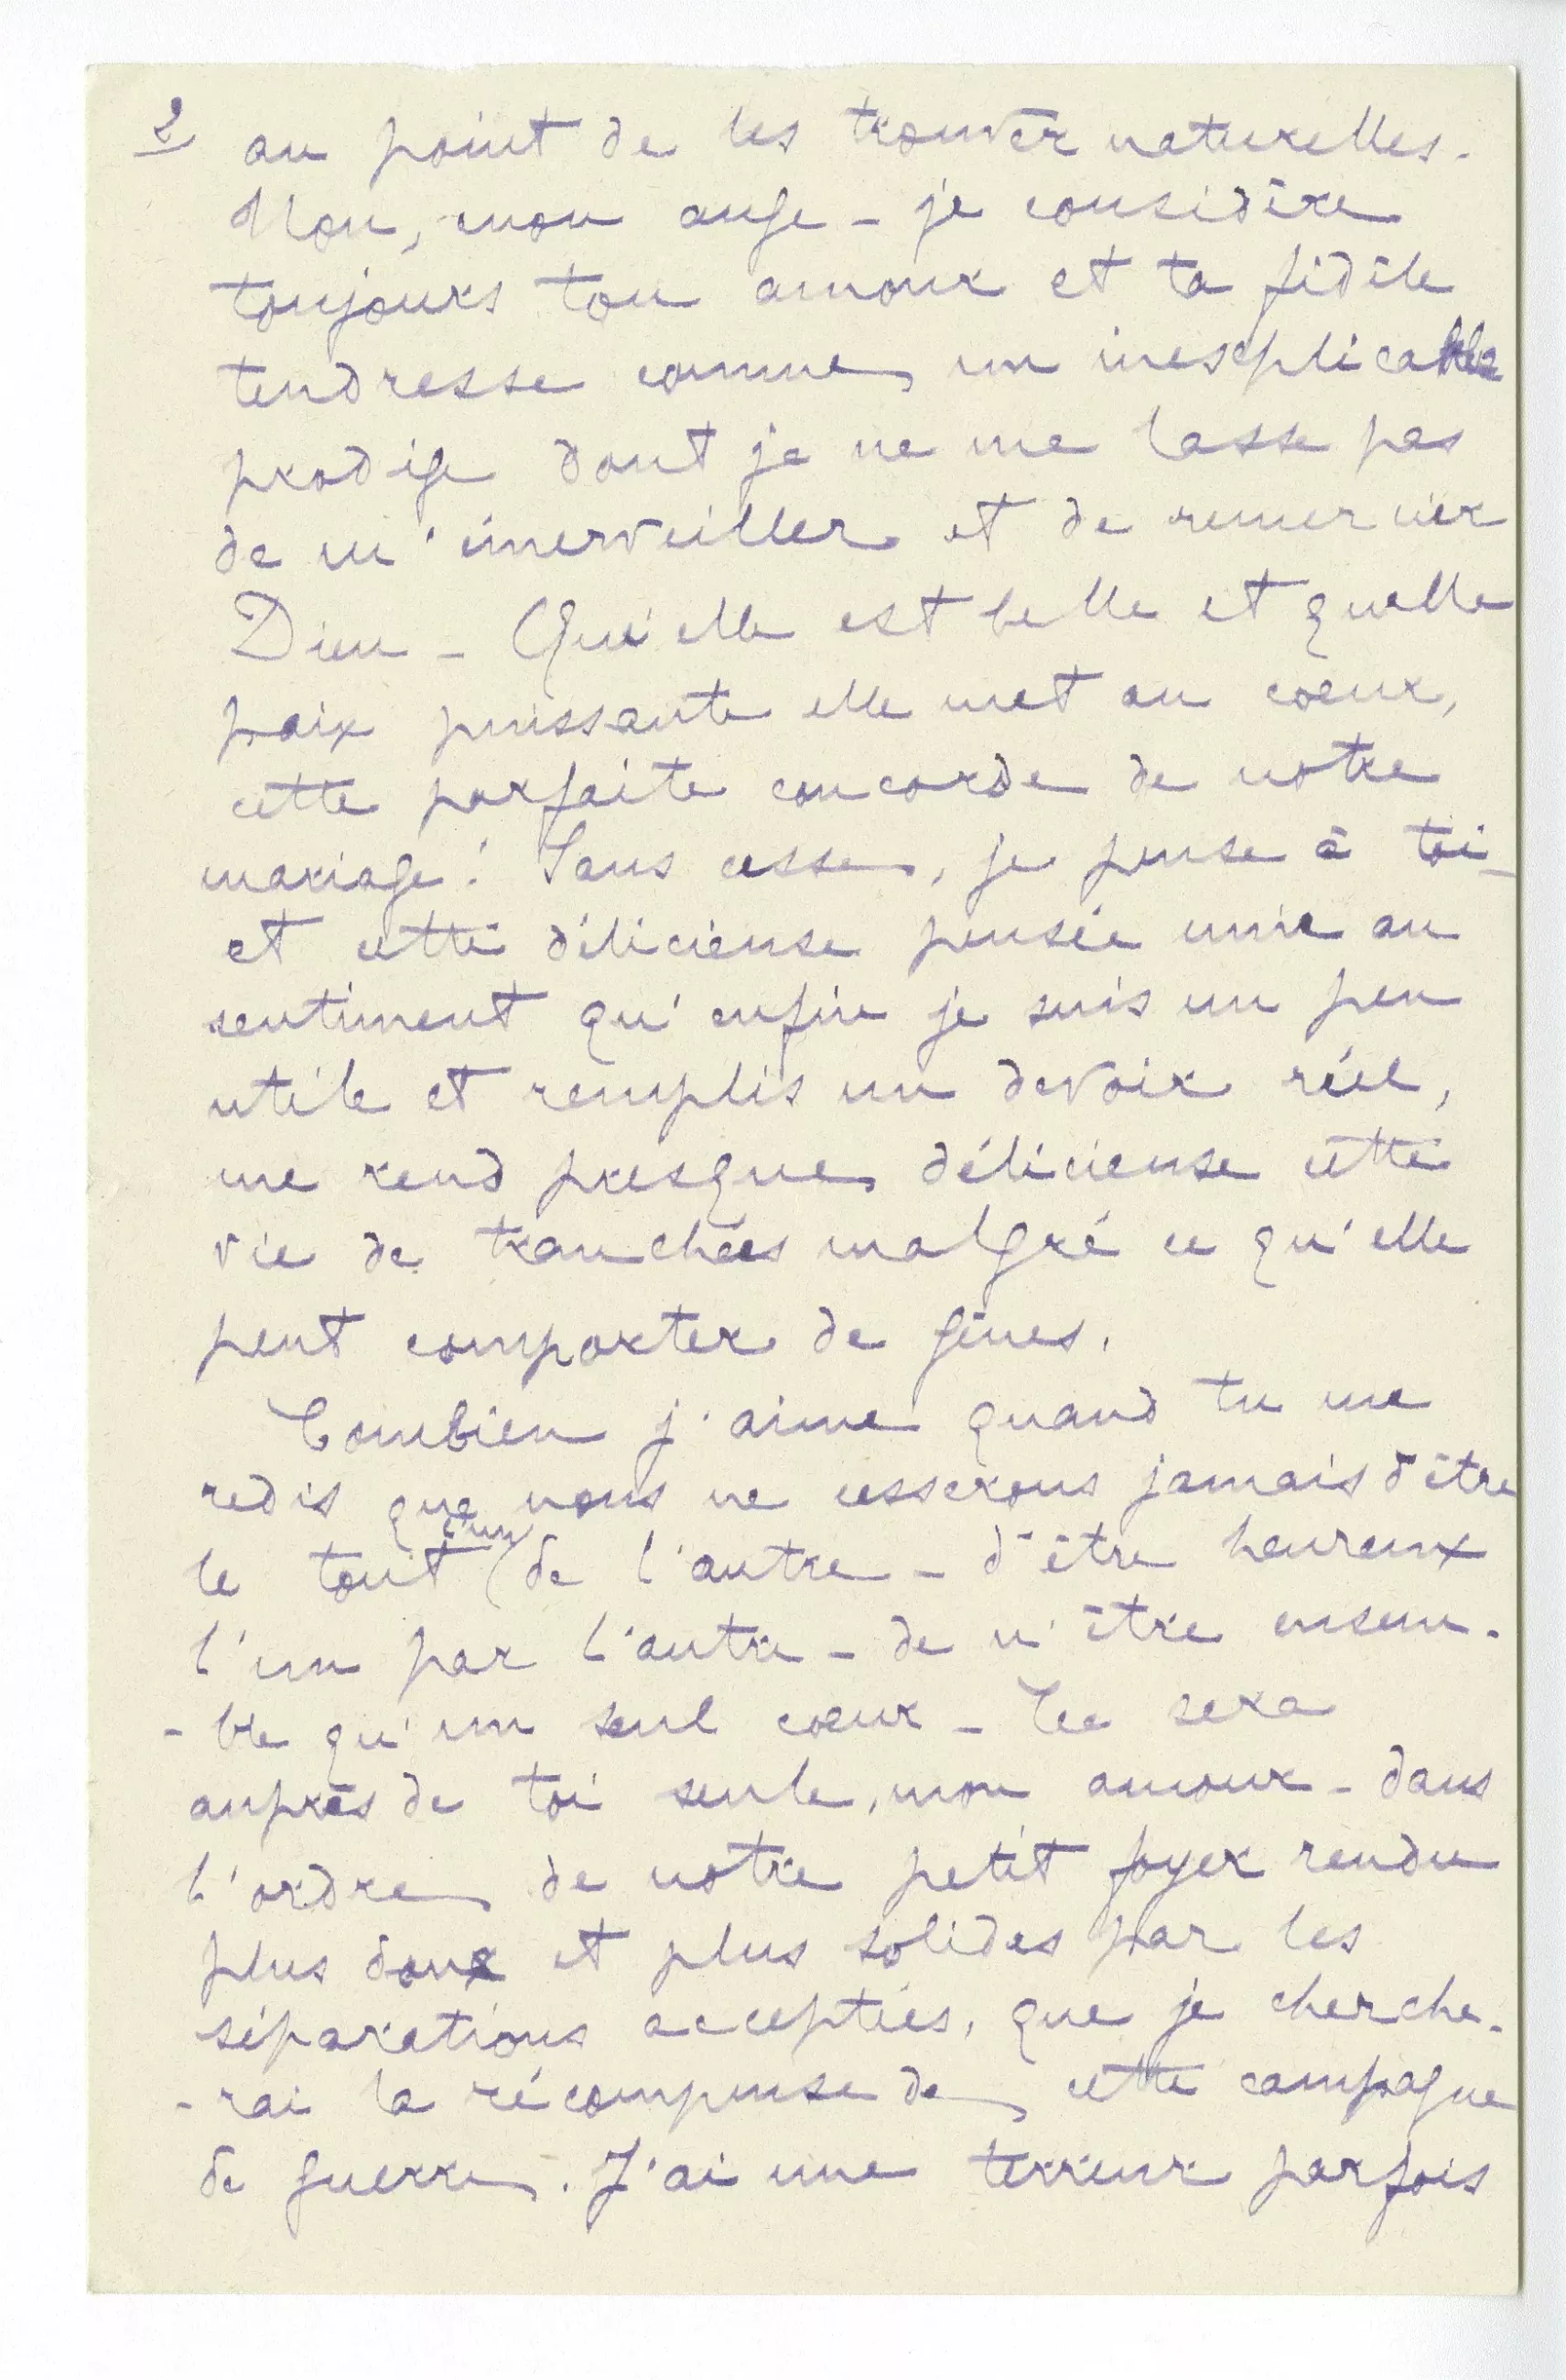 2 au point de les trouver naturelles.
Non, mon ange - je considère
toujours ton amour et ta fidèle
tendresse comme un inexplicable
prodige dont je ne me lasse pas
de m'émerveiller et de remercier
Dieu - Qu'elle est belle et quelle
paix puissante elle met au coeur,
cette parfaite concorde de notre
mariage! Sans cesse, je pense à toi -
et cette délicieuse pensée unie au
sentiment qu'enfin je suis un peu
utile et remplis un devoir réel,
me rend presque délicieuse cette
vie de tranchées malgré ce qu'elle
peut comporter de gênes.
Combien j'aime quand tu me
redis que nous ne cesserons jamais d'être
le tout l'un de l'autre - d'être heureux
l'un par l'autre - de n'être ensem-
-ble qu'un seul coeur - Ce sera
auprès de toi seule, mon amour - dans
l'ordre de notre petit foyer rendu
plus doux et plus solides par les
séparations acceptées, que je cherche-
-rai la récompense de cette campagne
de guerre. J'ai une terreur parfois